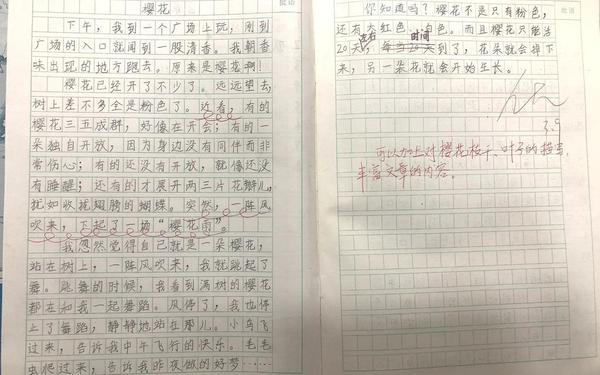 樱花
下午，我到一个广场上玩，刚到
广场的入口就闻到一股清香。我朝香
味出现的地方跑去。原来是樱花啊！
樱花已经开了不少了。远远望去，
树上差不多全是粉色了。近看，有的
樱花三五成群，好像在开会；有的一
朵独自开放，因为身边没有同伴而非
常伤心；有的还没有开放，就像还没
有睡醒；还有的才展开两三片花瓣儿，
犹如收拢翅膀的蝴蝶。突然，一阵风
吹来，下起了一场“樱花雨”。
我忽然觉得自己就是一朵樱花，
站在树上，一阵风吹来，我就跳起了
舞。跳舞的时候，我看到满树的樱花
都在和我一起舞蹈。风停了，我也停
止了舞蹈，静静地站在那儿。小鸟飞
过来，告诉我中午飞行的快乐。毛毛
虫爬过来，告诉我昨夜做的好梦……
批语
你知道吗？樱花不是只有粉色，
还有大红色、白色。而且樱花只能活
左右 时间
20天，每当20天到了，花朵就会掉下
来，另一朵花就会开始生长。
3.9
可以加上对樱花枝干、叶子的描写，
丰富文章的内容。